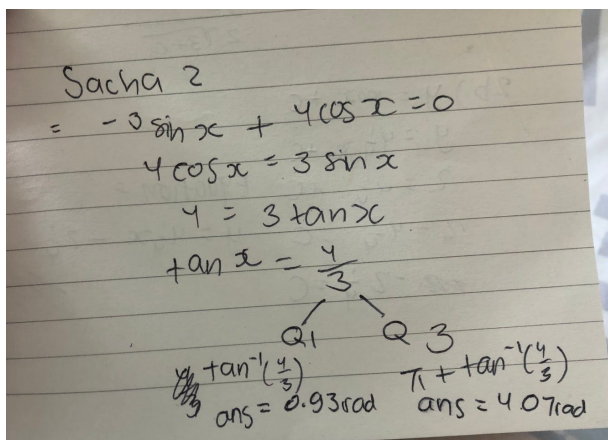 Sacha 2
= -3 sin x + 4 cos x = 0
4 cos x = 3 sin x
4 = 3 tan x
tan x = 4/3
Q1 Q3
tan⁻¹(4/3) π + tan⁻¹(4/3)
ans = 0.93rad ans = 4.07rad